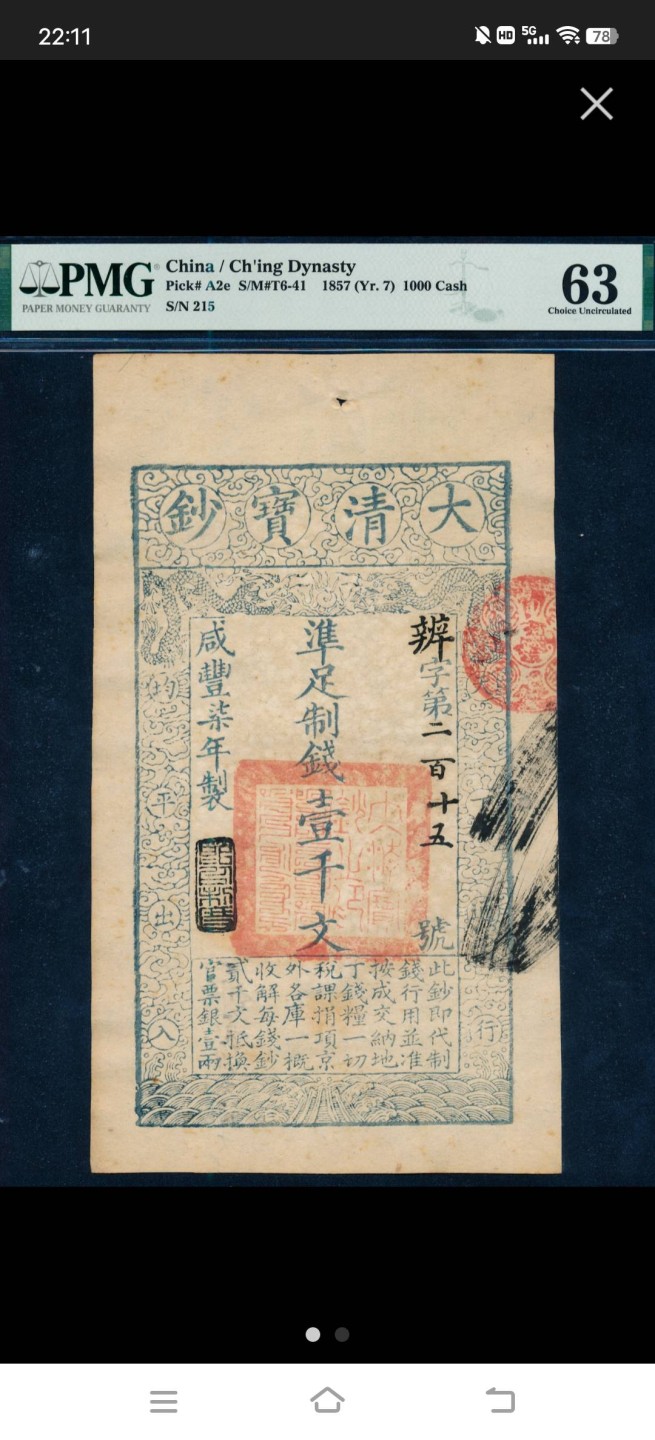 22:11
HD 5G 78
PMG
PAPER MONEY GUARANTY
China / Ch'ing Dynasty
Pick# A2e S/M#T6-41 1857 (Yr. 7) 1000 Cash
S/N 215
63
Choice Uncirculated
大清寶鈔
辨字第二百十五號
準足制錢壹千文
咸豐柒年製
均平出入
行
此鈔即代制
錢行用並准
按成交納地
丁錢糧一切
稅課捐項京
外各庫一概
收解每錢鈔
貳千文抵換
官票銀壹兩